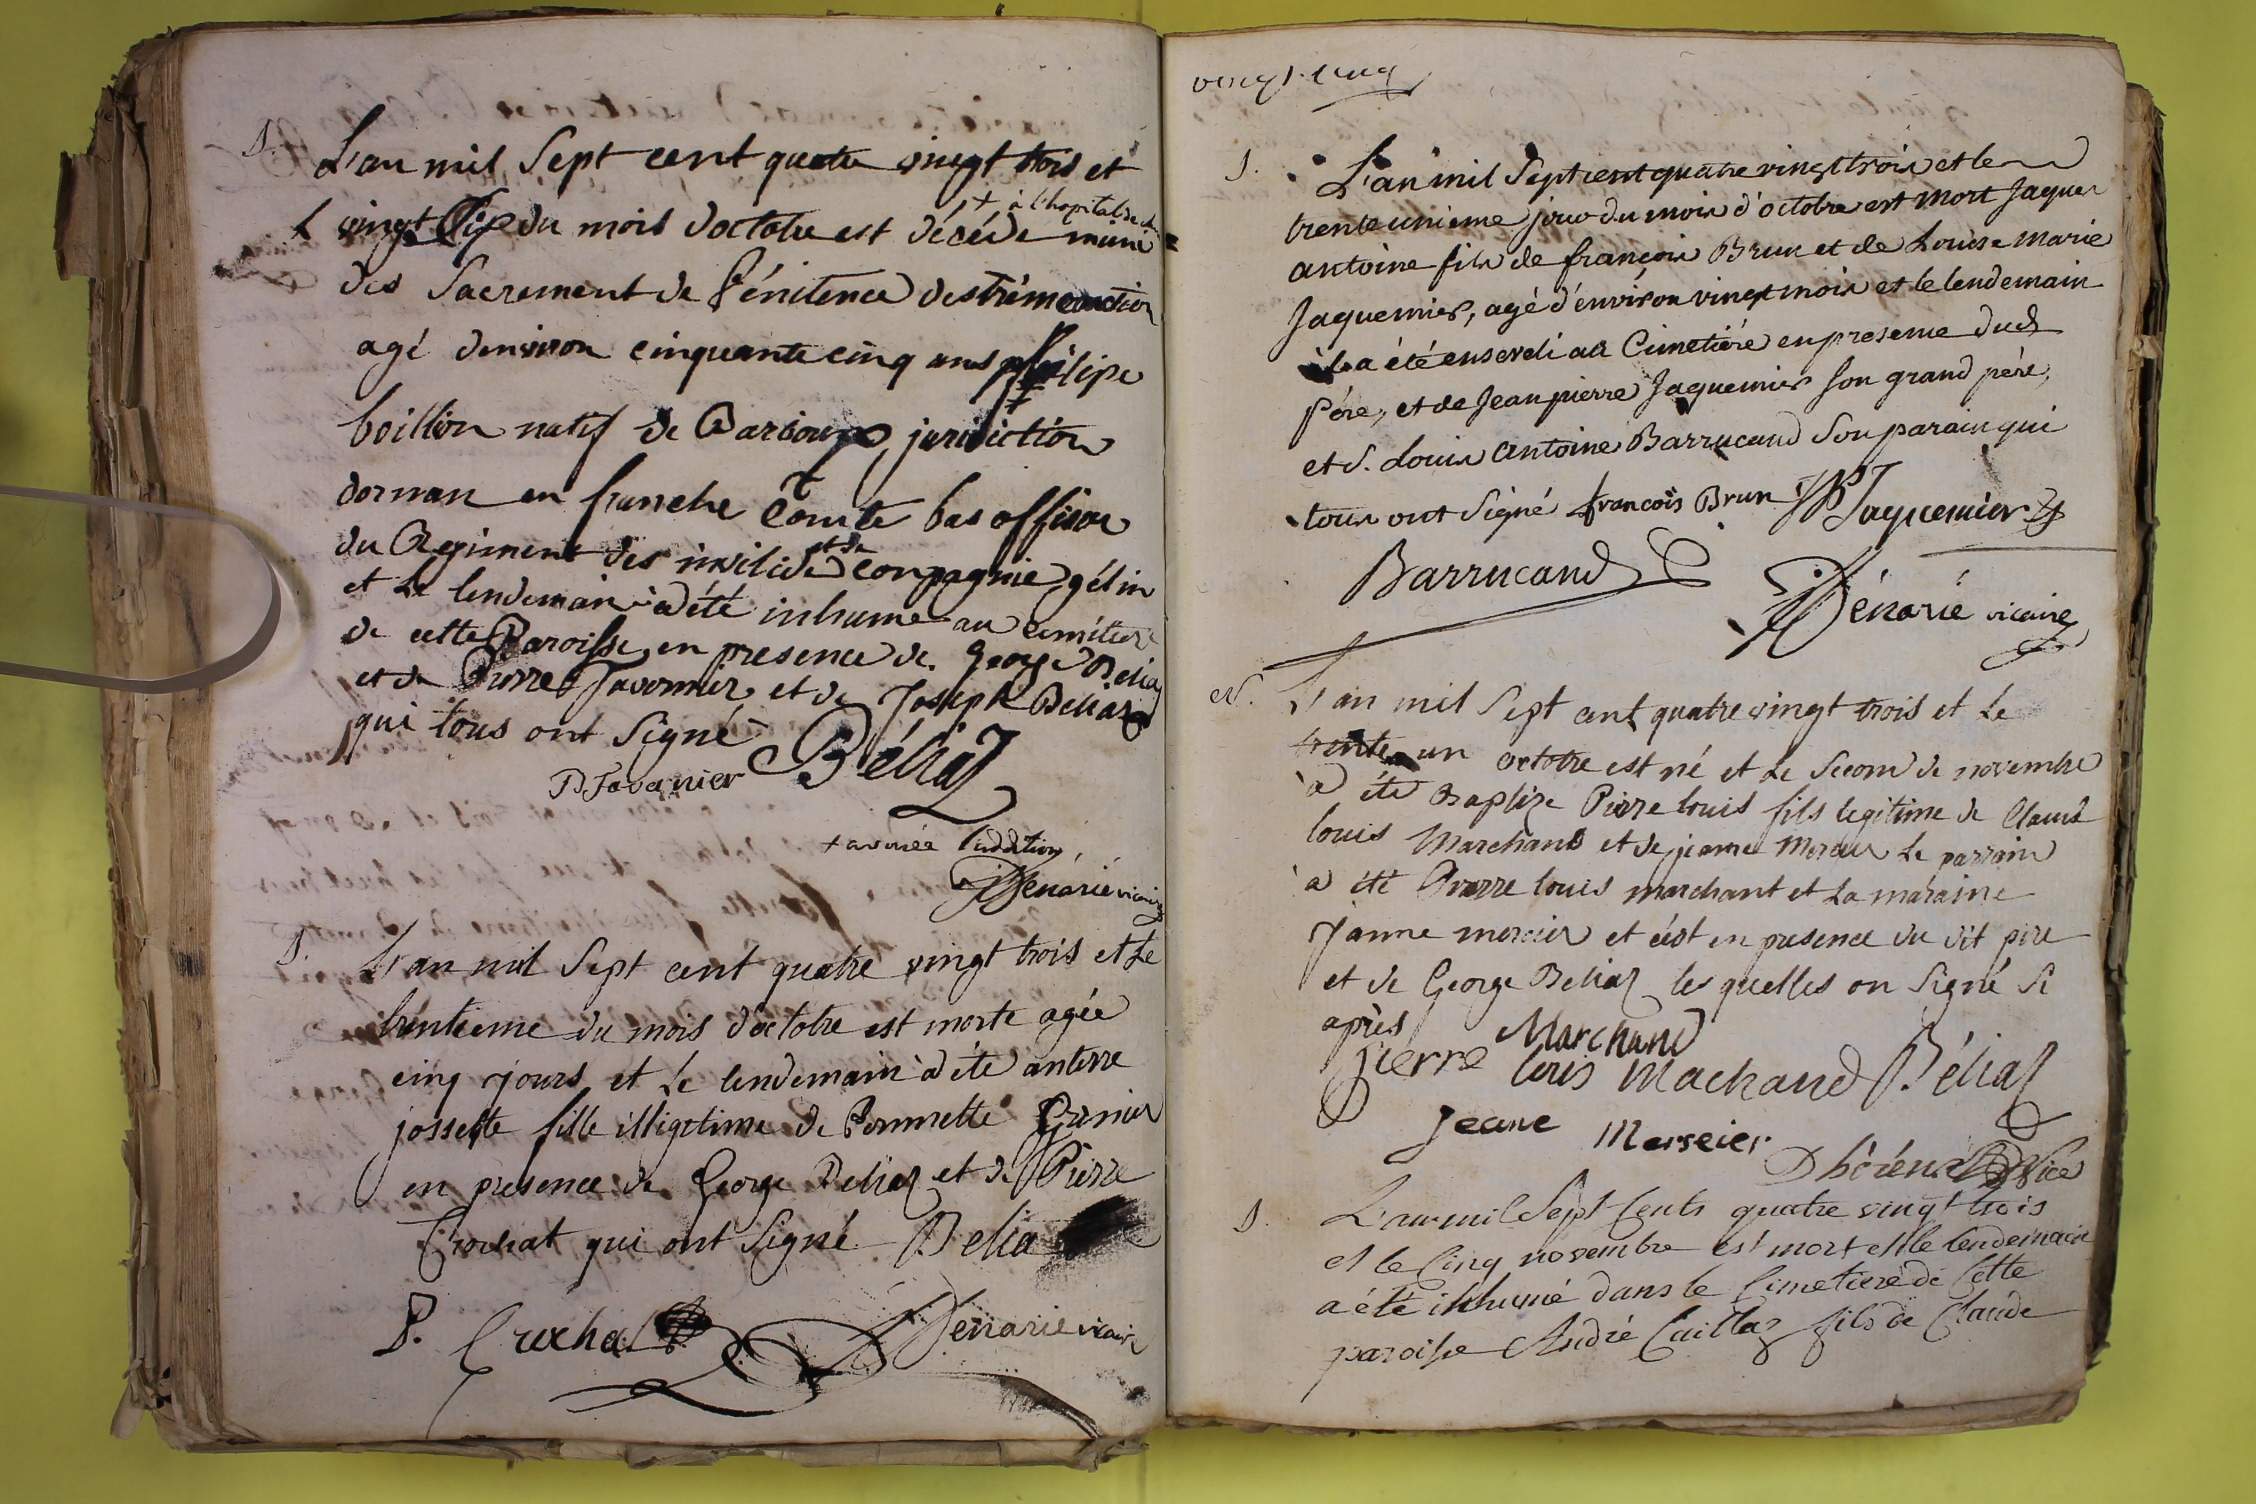 D. L'an mil Sept cent quatre vingt trois et
+ à l'hopital
L vingt Six du mois doctobre est décéde munie
des Sacrement de Pénitence destrémeonction
agé denviron cinquante cinq ans philipe
boillion natif de juridiction
dornan en franche Comte bas officier
du Regiment des invilide et de Compagnie gélin
et Le lendemain a été inhume au cemitiere
de cette Paroisse en presence de George Belia
et de Pierre Tavernier et de Joseph Beliaz
qui tous ont Signé
P Tavernier Béliaz
+ avouée l'addition
Dénarié vicaire
D. L'an mil Sept cent quatre vingt trois et Le
trentieme du mois d'octobre est morte agée
cinq jours et Le lendemain a été anterre
jossette fille illigetime de Pernnette Grenier
en presence de George Beliaz et de Pierre
Crochat qui ont Signé Belia
P. Crochat Denarie vicaire
vingt-cinq
D. L'an mil Sept cent quatre vingt trois et le
trente unieme jour du mois d'octobre est mort Jaques
antoine fils de françois Brun et de Louise Marie
Jaquemier, agé d'environ vingt mois et le lendemain
il a été enseveli au Cimetière en presence dud.
Pére, et de Jean pierre Jaquemier son grand pére,
et S. Louis Antoine Barrucand Son parain qui
tous ont Signé francois Brun JP Jaquemier
Barrucand
Dénarié vicaire
N. L'an mil Sept cent quatre vingt trois et Le
trente un octobre est né et Le Secon de novembre
a été Baptize Pierre louis fils legitime de Claude
louis Marchand et de jeanne Mercier Le parrain
a été Pierre louis marchant et La maraine
Janne mercier et c'est en presence du dit pere
et de George Beliaz les quelles on Signé Si
après
Pierre Marchand
louis Machand Béliaz
Jeane Merseier
D. L'an mil Sept Cents quatre vingt trois
et le Cinq novembre est mort et le lendemain
a été inhumé dans le Cimetiere de Cette
paroisse André Caillaz fils de Claude